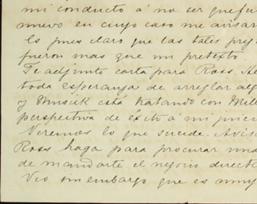 mi conducto á no ser que fu
nuevo en cuyo caso me avisar
Es pues claro que las tales preg
fueron mas que un pretexto
Te adjunto carta para Ross
toda esperanza de arreglar alg
y Musick está tratando con Mill
perspectiva de éxito á mi juici
Veremos lo que sucede. Avisa
Ross haga para procurar una
de mandarte el negocio direct
Veo sin embargo que es muy